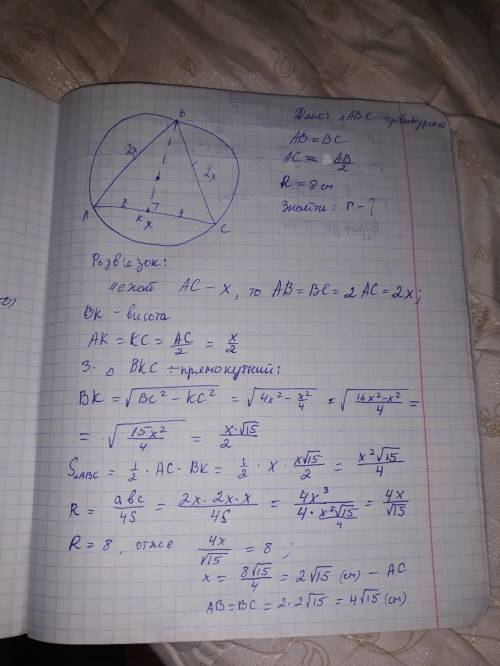 Дано: △ABC рівнобедрений
AB = BC
AC = AB/2
R = 8 см
Знайти: r - ?
B
2x
2x
A
K
x
C
Розв'язок:
нехай AC - x, то AB = BC = 2AC = 2x;
BK - висота
AK = KC = AC/2 = x/2
З △ BKC - прямокутний:
BK = √(BC² - KC²) = √(4x² - x²/4) = √((16x² - x²)/4) =
= √(15x²/4) = x·√15/2
S△ABC = 1/2 · AC · BK = 1/2 · x · x√15/2 = x²√15/4
R = abc/4S = 2x·2x·x/4S = 4x³/(4·x²√15/4) = 4x/√15
R = 8, отже 4x/√15 = 8;
x = 8√15/4 = 2√15 (см) - AC
AB = BC = 2·2√15 = 4√15 (см)